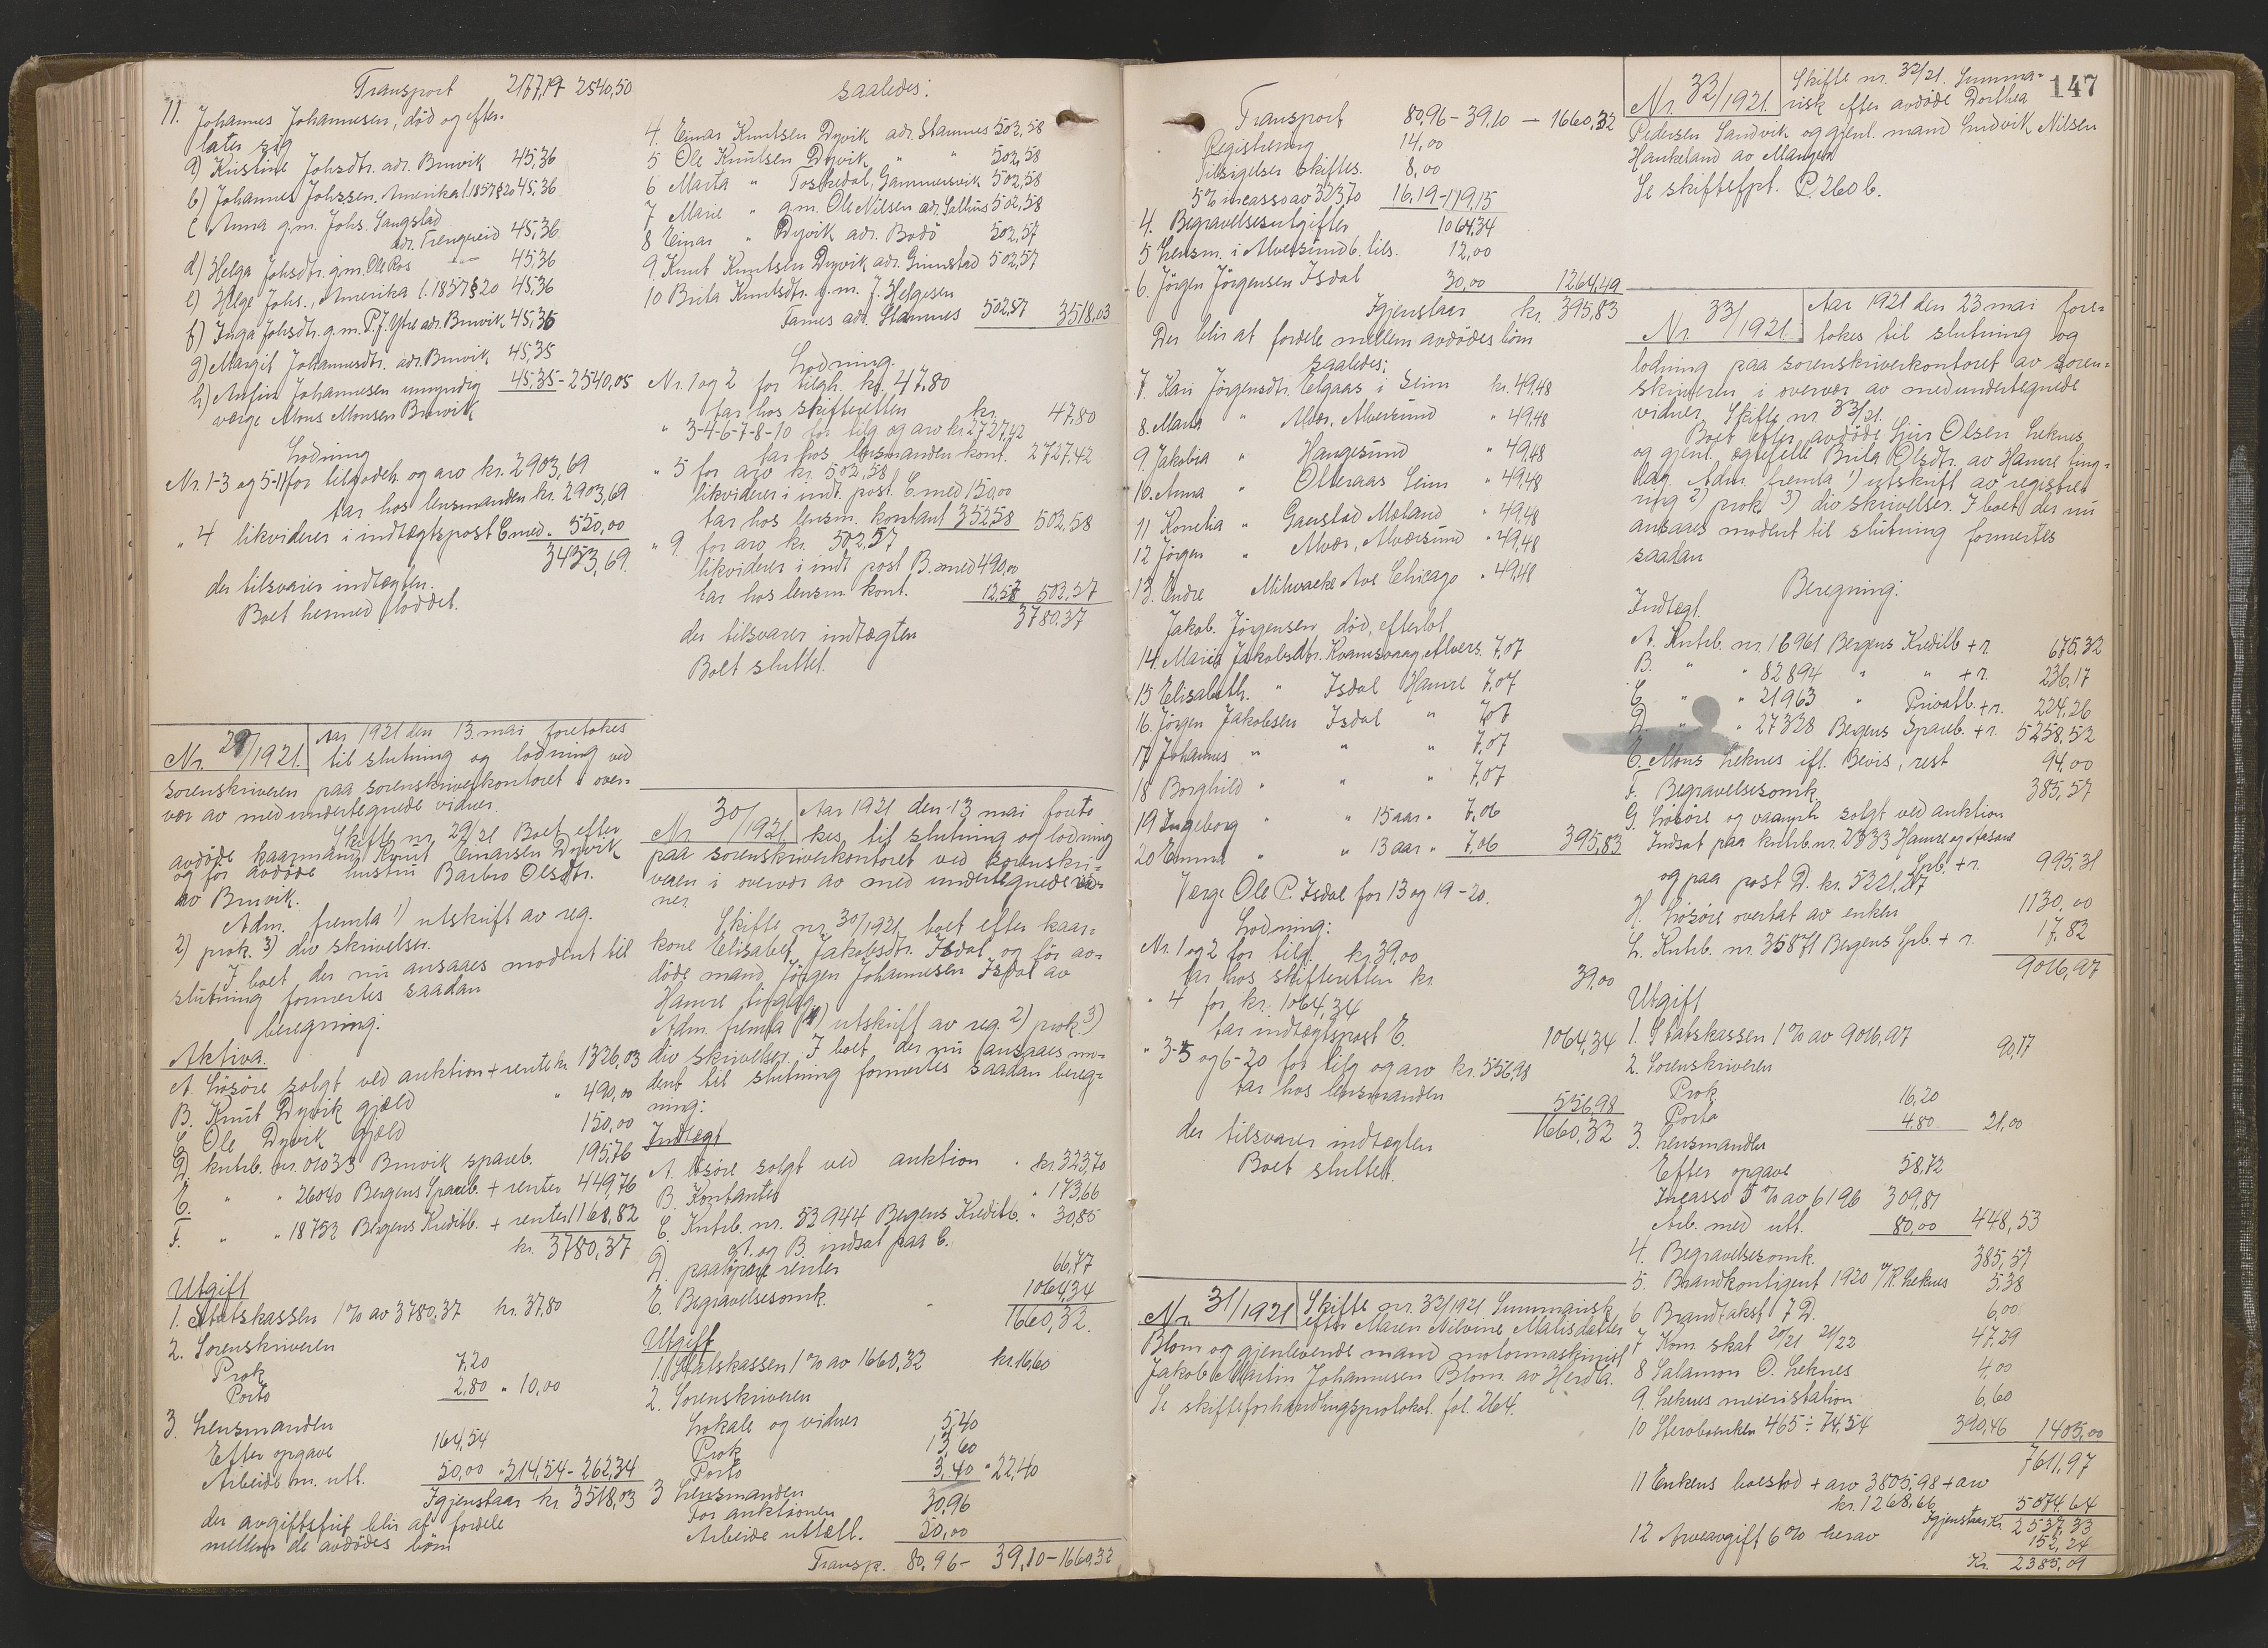 Transport 2177,19 2540,50
11. Johannes Johannesen, död og efter-
later sig
a) Kristine Johsdtr. adr. Bruvik 45,36
b) Johannes Johssen. Amerika l. 1857 § 20 45,36
c Anna g.m. Johs. Langstad
adr. Trengereid 45,36
d) Helga Johsdtr. g.m. Ole Ros -"- 45,36
e) Helge Johs., Amerika l. 1857 § 20 45,36
f) Inga Johsdtr. g.m. P.J. Ytre adr. Bruvik 45,35
g) Margit Johannesdtr. adr. Bruvik 45,35
h) Anfin Johannesen umyndig 45,35 - 2540,05
værge Mons Monsen Bruvik
Lodning
Nr. 1-3 og 5-11 for tilgodeh. og arv kr. 2903,69
tar hos lensmanden kr. 2903,69
" 4 likviderer i indtægtspost C med " 550,00
3453,69.
der tilsvarer indtægten.
Boet hermed sloddet.
Nr. 29/1921. Aar 1921 den 13. mai foretokes
til slutning og lodning ved
sorenskriveren paa sorenskriverkontoret i over-
vær av medundertegnede vidner.
Skifte nr. 29/21 Boet efter
avdöde kaarmand Knut Einarsen Dyvik
og för avdöde hustru Barbro Olsdtr.
av Bruvik.
Adm. fremla 1) utskrift av reg.
2) prok. 3) div skrivelser.
I boet der nu ansaaes modent til
slutning formertes saadan
beregning:
Aktiva.
A. Lösöre solgt ved auktion + rente kr. 1326,03
B. Knut Dyvik gjæld " 490,00
C Ole Dyvik gjæld 150,00
D. kntrb. nr. 01033 Bruvik spareb. 195,76
E. " " 26040 Bergens Spareb. + renter 449,76
F. " " 18752 Bergens Kreditb. + renter 1168,82
kr. 3780,37
Utgift
1. Statskassen 1 % av 3780,37 kr. 37,80
2. Sorenskriveren
Prok 7,20
Porto 2,80 " 10,00
3. Lensmanden
Efter opgave 164,54
Arbeide m. utl. 50,00 " 214,54 - 262,34
Igjenstaar kr. 3518,03
der avgiftsfrit blir at fordele
mellem de avdödes börn
saaledes:
4. Einar Knutsen Dyvik adr. Stamnes 502,58
5 Ole Knutsen Dyvik " " 502,58
6 Marta " Toskedal, Gammersvik 502,58
7 Marie " g.m. Ole Nilsen adr. Salhus 502,58
8 Einar " Dyvik adr. Bodö 502,57
9 Knut Knutsen Dyvik adr. Grimstad 502,57
10 Brita Knutsdtr. g.m. J. Helgesen
Fames adr. Stamnes 502,57 3518,03
Lodning.
Nr. 1 og 2 for tilgh. kr. 47,80
tar hos skifteretten kr. 47,80
" 3-4-6-7-8-10 for tilg og arv kr 2727,42
tar hos lensmanden kont. 2727,42
" 5 for arv kr. 502,58
likviderer i indt. post C med 150,00
tar hos lensm. kontant 352,58 502,58
" 9 for arv kr. 502,57
likviderer i indt post B. med 490,00
tar hos lensm. kont. 12,57 502,57
3780,37
der tilsvarer indtægten
Boet sluttet.
Nr. 30/1921. Aar 1921 den 13 mai foreto
kes til slutning og lodning
paa sorenskriverkontoret ved sorenskri-
veren i overvær av med undertegnede vid-
ner.
Skifte nr. 30/1921 boet efter kaar-
kone Elisabet Jakobsdtr. Isdal og för av-
döde mand Jörgen Johannesen Isdal av
Hamre tinglag
Adm. fremla 1) utskrift av reg. 2) prok. 3)
div skrivelser. I boet der nu ansaaes mo-
dent til slutning formertes saadan bereg-
ning:
Indtægt
A. lösöre solgt ved auktion " kr. 323,70
B. Kontanter " 173,66
C. Kntrb. nr. 52944 Bergens Kreditb. " 30,85
A. og B. indsat paa C.
D. paalöpne renter 66,77
E. Begravelsesomk. " 1064,34
1660,32.
Utgift
1. Statskassen 1 % av 1660,32 kr. 16,60
2. Sorenskriveren
Lokale og vidner 5,40
Prok 13,60
Porto 3,40 " 22,40
3 Lensmanden
For auktionen 30,96
Arbeide uttæll. 50,00
Transp. 80,96 - 39,10 - 1660,32
Transport 80,96 - 39,10 - 1660,32
Registrering 14,00
Tilsigelser Skiftes. 8,00
5 % incasso av 323,70 16,19 - 119,15
4. Begravelsesutgifter 1064,34
5 Lensm. i Alversund b. tils. 12,00
6. Jörgen Jörgensen Isdal 30,00 1264,49
Igjenstaar kr. 395,83
Der blir at fordele mellem avdödes börn
saaledes:
7. Kari Jörgensdtr. Elgaas i Seim kr. 49,48
8. Marta " Alvær, Alversund " 49,48
9. Jakobia " Haugesund " 49,48
10. Anna " Olteraas Seim " 49,48
11 Kornelia " Gaustad Moland " 49,48
12 Jörgen " Alvær, Alversund " 49,48
13. Endre Milwaeke Ave Chicago " 49,48
Jakob. Jörgensen död, efterlot
14. Maria Jakobsdtr. Kvamsvaag, Alvers. 7,07
15 Elisabeth. " Isdal Hamre 7,07
16. Jörgen Jakobsen Isdal " 7,07
17 Johannes " " " 7,07
18 Borghild " " " 7,07
19 Ingeborg " " 15 aar " 7,06
20 Emma " " 13 aar " 7,06 395,83
Værge Ole P. Isdal for 13 og 19-20.
Lodning:
Nr. 1 og 2 for tilg. kr. 39,00
tar hos skifteretten kr 39,00
" 4 for kr. 1064,34
tar indtægtspost E. 1064,34
" 3-5 og 6-20 for tilg og arv kr. 556,98
tar hos lensmanden 556,98
der tilsvarer indtægten 1660,32
Boet sluttet.
Nr. 31/1921 Skifte nr. 32/1921 Summarisk
efter Maren Nilvine Matisdatter
Blom og gjenlevende mand motormaskinist
Jakob Martin Johannesen Blom av Herdla.
Se skifteforhandlingsprotokol. fol. 264.
147
Nr. 32/1921. Skifte nr. 32/21. Summa-
risk efter avdöde Dorthea
Pedersen Sandvik og gjenl. mand Ludvik Nilsen
Haukeland av Manger
Se skiftefpt. P. 260 b.
Nr. 33/1921. Aar 1921 den 23 mai fore-
tokes til slutning og
lodning paa sorenskriverkontoret av soren-
skriveren i overvær av medundertegnede
vidner. Skifte nr. 33/21.
Boet efter avdöde Sjur Olsen Leknes
og gjenl. ægtefelle Brita Olsdtr. av Hamre ting-
lag. Adm. fremla 1) utskrift av registre-
ring 2) prok. 3) div skrivelser. I boet der nu
ansaaes modent til slutning formertes
saadan
Beregning:
Indtægt.
A. Kntrb. nr. 16961 Bergens Kreditb + r. 675,32
B. " " 82894 " " + r. 236,17
C " " 21963 " Privatb. + r. 224,26
D. " " 27328 Bergens Spareb. + r. 5258,52
E. Mons Leknes ifl. Bevis, rest 94,00
F. Begravelsesomk. 385,57
G. Lösöre og vaaningh solgt ved auktion
Indsat paa kntrb. nr. 2333 Hamre og Aasane
Spb. + r. 995,31
og paa post D. kr. 5221,27
H. Lösöre overtat av enken 1130,00
L. Kntrb. nr. 35871 Bergens Spb. + r. 17,82
9016,97
Utgift
1. Statskassen 1 % av 9016,97 90,17
2. Sorenskriveren
Prok 16,20
Porto 4,80 21,00
3. Lensmanden
Efter opgave 58,72
Incasso 5 % av 6196 309,81
Arb. med utl. 80,00 448,53
4. Begravelsesomk. 385,57
5. Brandkontigent 1920 v/ R Leknes 5,38
6 Brandtakst 7 D. 6,00
7 Kom. skat 20/21 21/22 47,29
8 Salamon O. Leknes 4,00
9. Leknes meieristation 6,60
10 Steroboenken 465 ÷ 74,54 390,46 1405,00
7611,97
11 Enkens boeslod + arv 3805,98 + arv
kr. 1268,66 5074,64
Igjenstaar kr. 2537,33
12 Arveavgift 6 % herav 152,24
Kr. 2385,09